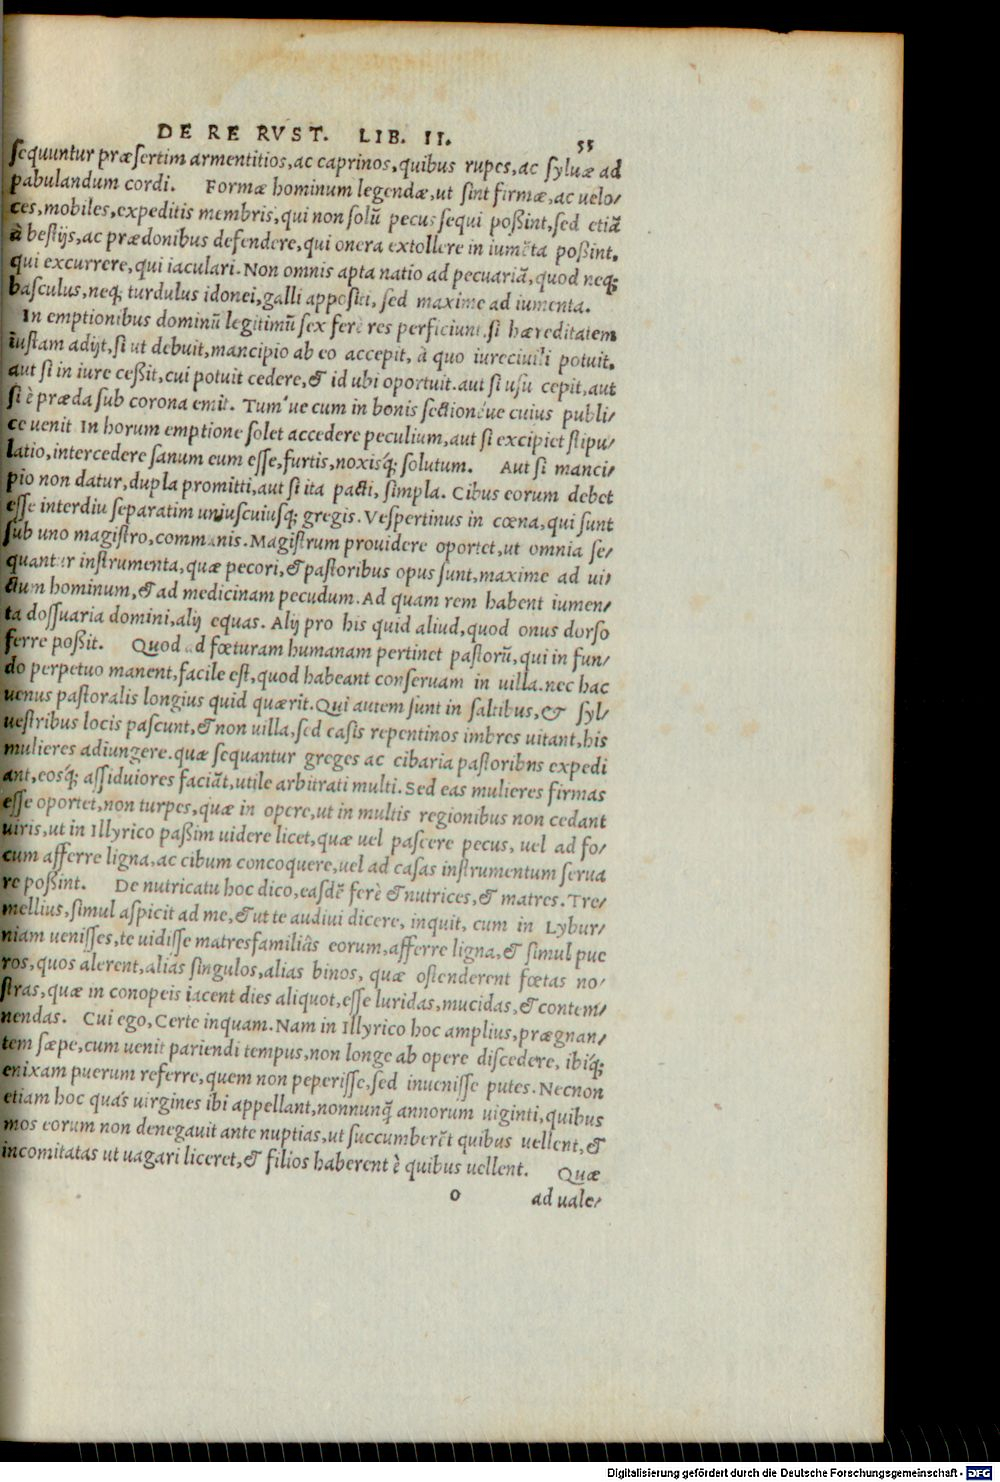 DE RE RVST. LIB. II. 55
sequuntur præsertim armentitios, ac caprinos, quibus rupes, ac syluæ ad
pabulandum cordi. Formæ hominum legendæ, ut sint firmæ, ac uelo/
ces, mobiles, expeditis membris, qui non solū pecus sequi poßint, sed etiā
à bestijs, ac prædonibus defendere, qui onera extollere in iumēta poßint,
qui excurrere, qui iaculari. Non omnis apta natio ad pecuariā, quod neq;
basculus, neq; turdulus idonei, galli appositi, sed maxime ad iumenta.
In emptionibus dominū legitimū sex ferè res perficiunt. si hæreditatem
iustam adijt, si ut debuit, mancipio ab eo accepit, à quo iureciuili potuit.
aut si in iure ceßit, cui potuit cedere, & id ubi oportuit. aut si usu cepit, aut
si è præda sub corona emit. Tum'ue cum in bonis sectione'ue cuius publi/
ce uenit In horum emptione solet accedere peculium, aut si excipiet stipu/
latio, intercedere sanum eum esse, furtis, noxisq́; solutum. Aut si manci/
pio non datur, dupla promitti, aut si ita pacti, simpla. Cibus eorum debet
esse interdiu separatim uniuscuiusq; gregis. Vespertinus in cœna, qui sunt
sub uno magistro, communis. Magistrum prouidere oportet, ut omnia se/
quantur instrumenta, quæ pecori, & pastoribus opus sunt, maxime ad ui/
ctum hominum, & ad medicinam pecudum. Ad quam rem habent iumen/
ta dossuaria domini, alij equas. Alij pro his quid aliud, quod onus dorso
ferre poßit. Quod ad fœturam humanam pertinet pastorū, qui in fun/
do perpetuo manent, facile est, quod habeant conseruam in uilla. nec hac
uenus pastoralis longius quid quærit. Qui autem sunt in saltibus, & syl/
uestribus locis pascunt, & non uilla, sed casis repentinos imbres uitant, his
mulieres adiungere. quæ sequantur greges ac cibaria pastoribns expedi
ant, eosq́; assiduiores faciāt, utile arbitrati multi. Sed eas mulieres firmas
esse oportet, non turpes, quæ in opere, ut in multis regionibus non cedant
uiris, ut in Illyrico paßim uidere licet, quæ uel pascere pecus, uel ad fo/
cum afferre ligna, ac cibum concoquere, uel ad casas instrumentum serua
re poßint. De nutricatu hoc dico, easdē ferè & nutrices, & matres. Tre/
mellius, simul aspicit ad me, & ut te audiui dicere, inquit, cum in Lybur/
niam uenisses, te uidisse matresfamiliâs eorum, afferre ligna, & simul pue
ros, quos alerent, alias singulos, alias binos, quæ ostenderent fœtas no/
stras, quæ in conopeis iacent dies aliquot, esse luridas, mucidas, & contem/
nendas. Cui ego, Certe inquam. Nam in Illyrico hoc amplius, prægnan/
tem sæpe, cum uenit pariendi tempus, non longe ab opere discedere, ibiq́;
enixam puerum referre, quem non peperisse, sed inuenisse putes. Necnon
etiam hoc quás uirgines ibi appellant, nonnunq̄ annorum uiginti, quibus
mos eorum non denegauit ante nuptias, ut succumberēt quibus uellent, &
incomitatas ut uagari liceret, & filios haberent è quibus uellent. Quæ
o ad uale/
Digitalisierung gefördert durch die Deutsche Forschungsgemeinschaft - DFG